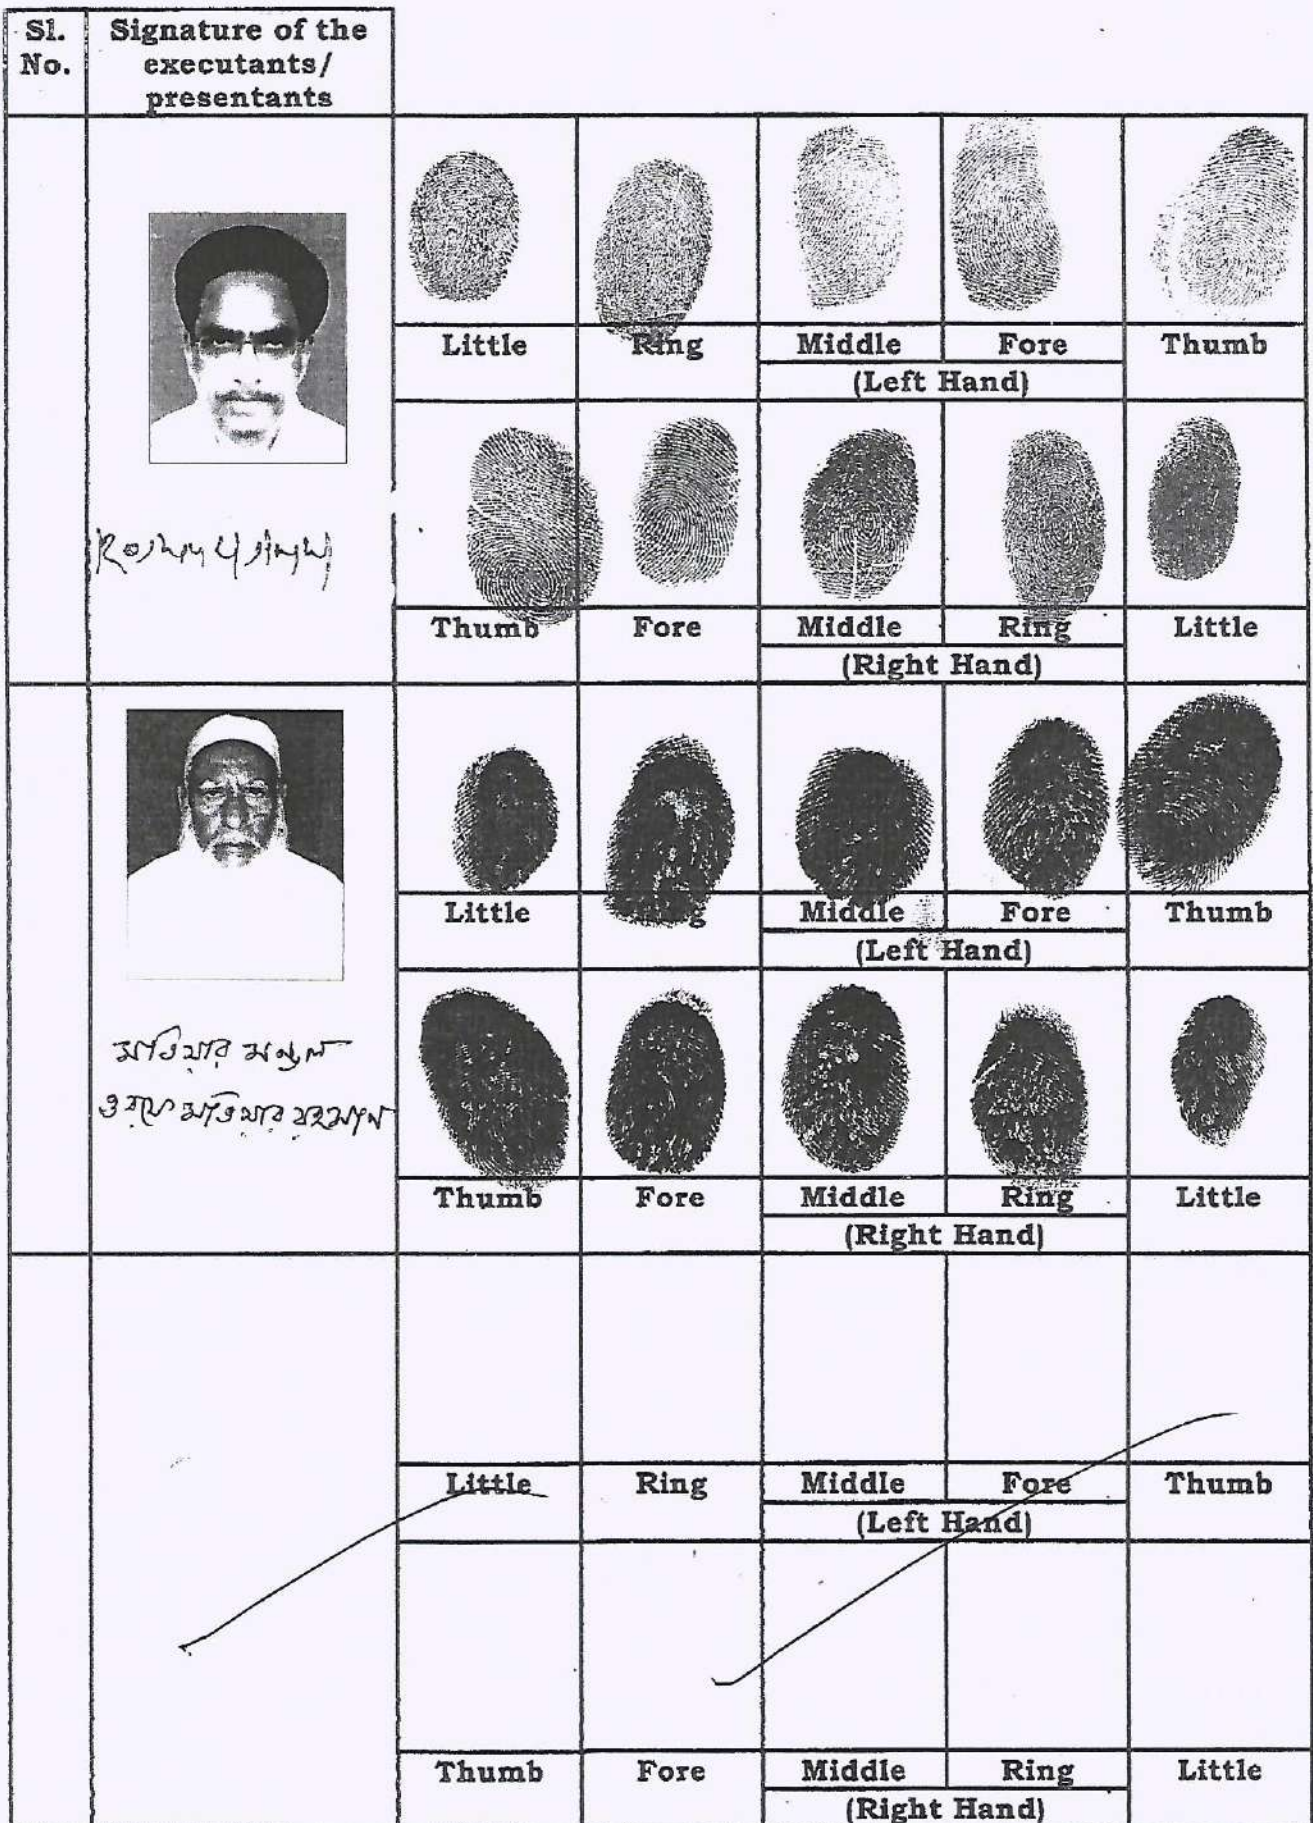 Sl. No.
Signature of the executants/ presentants
Little Ring Middle Fore Thumb
(Left Hand)
Thumb Fore Middle Ring Little
(Right Hand)
Little Middle Fore Thumb
(Left Hand)
মতিয়ার মণ্ডল
ওরফে মতিয়ার রহমান
Thumb Fore Middle Ring Little
(Right Hand)
Little Ring Middle Fore Thumb
(Left Hand)
Thumb Fore Middle Ring Little
(Right Hand)